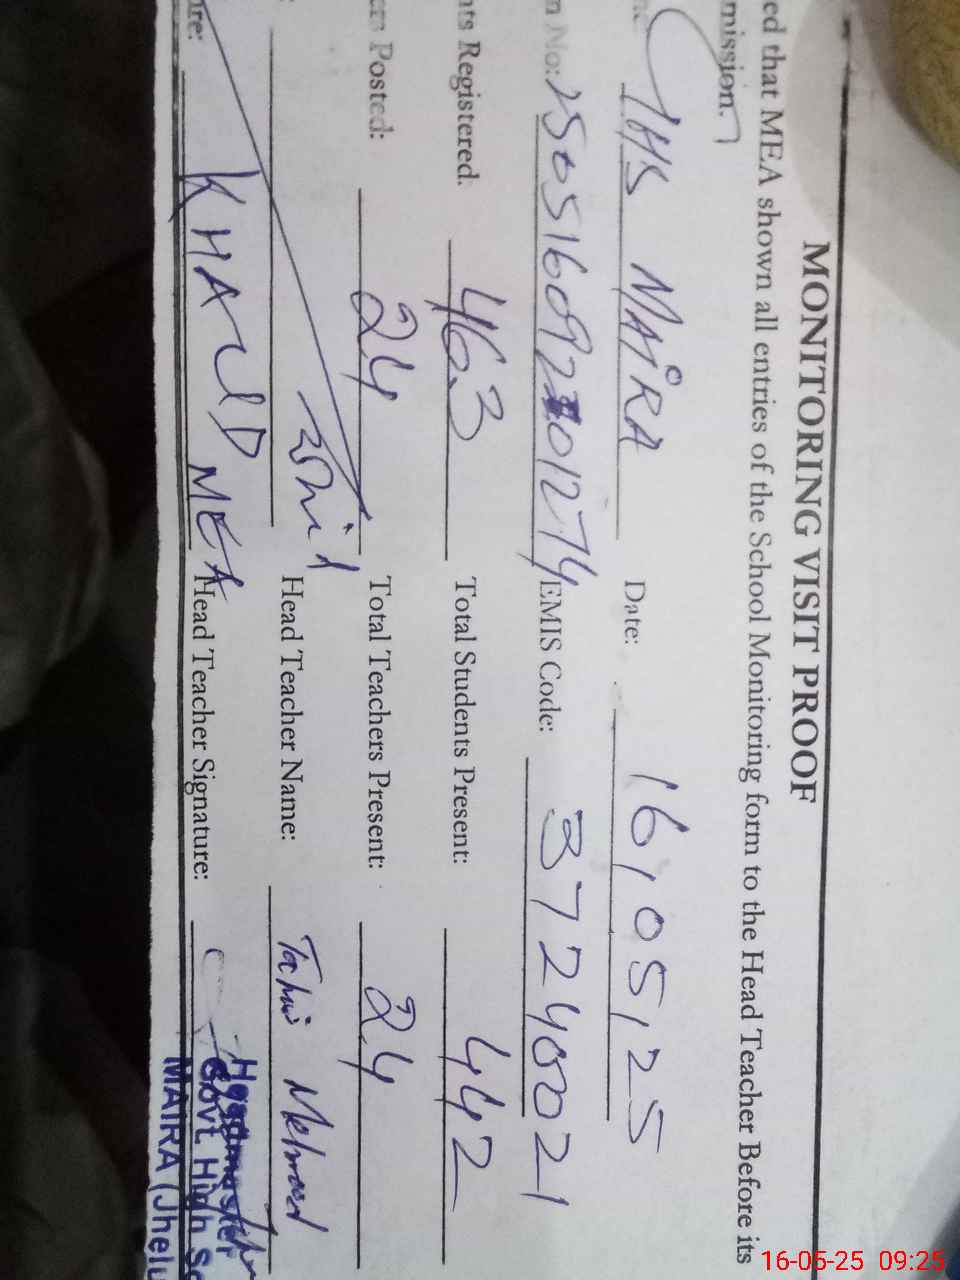 MONITORING VISIT PROOF
ed that MEA shown all entries of the School Monitoring form to the Head Teacher Before its
mission.
HS MAIRA Date: 16/05/25
n No: EMIS Code: 37240021
nts Registered: 463 Total Students Present: 442
ers Posted: 24 Total Teachers Present: 24
Head Teacher Name: Tahir Mehmood
re: KHALID MEA Head Teacher Signature:
Headmaster
Govt. High Sc
MAIRA (Jhelu
16-05-25 09:25